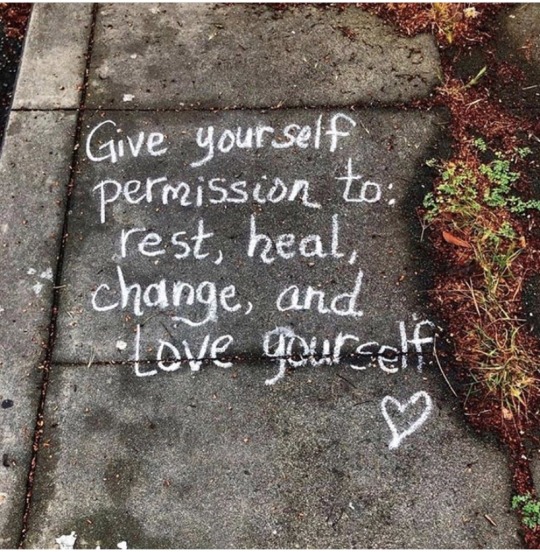 Give yourself
permission to:
rest, heal,
change, and
Love yourself